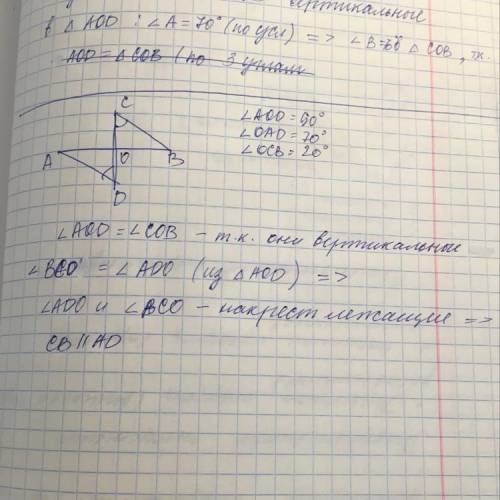 вертикальные
В △AOD : ∠A = 70° (по усл) => ∠B △COB, т.к.
AOD = △COB (по 3 углам
C
A
O
B
D
∠AOD = 90°
∠OAD = 70°
∠OCB = 20°
∠AOD = ∠COB – т.к. они вертикальные
∠BCO = ∠ADO (из △AOD) =>
∠ADO и ∠BCO – накрест лежащие =>
CB || AD